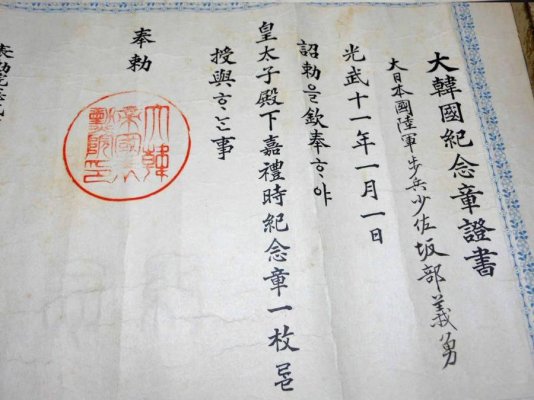 大韓國紀念章證書
大日本國陸軍步兵少佐坂部義勇
光武十一年一月一日
詔勅을欽奉ᄒᆞ야
皇太子殿下嘉禮時紀念章一枚를
授與ᄒᆞᄂᆞᆫ事
奉勅
大韓